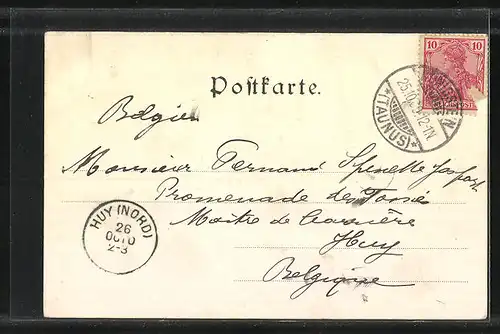 10
10
25.10.
12-1N
*(TAUNUS)*
Postkarte.
Belgien
Monsieur Fernand
Promenade des Fossés
Maître de Carrière
Huy
Belgique
HUY (NORD)
26
OCTO
2-3